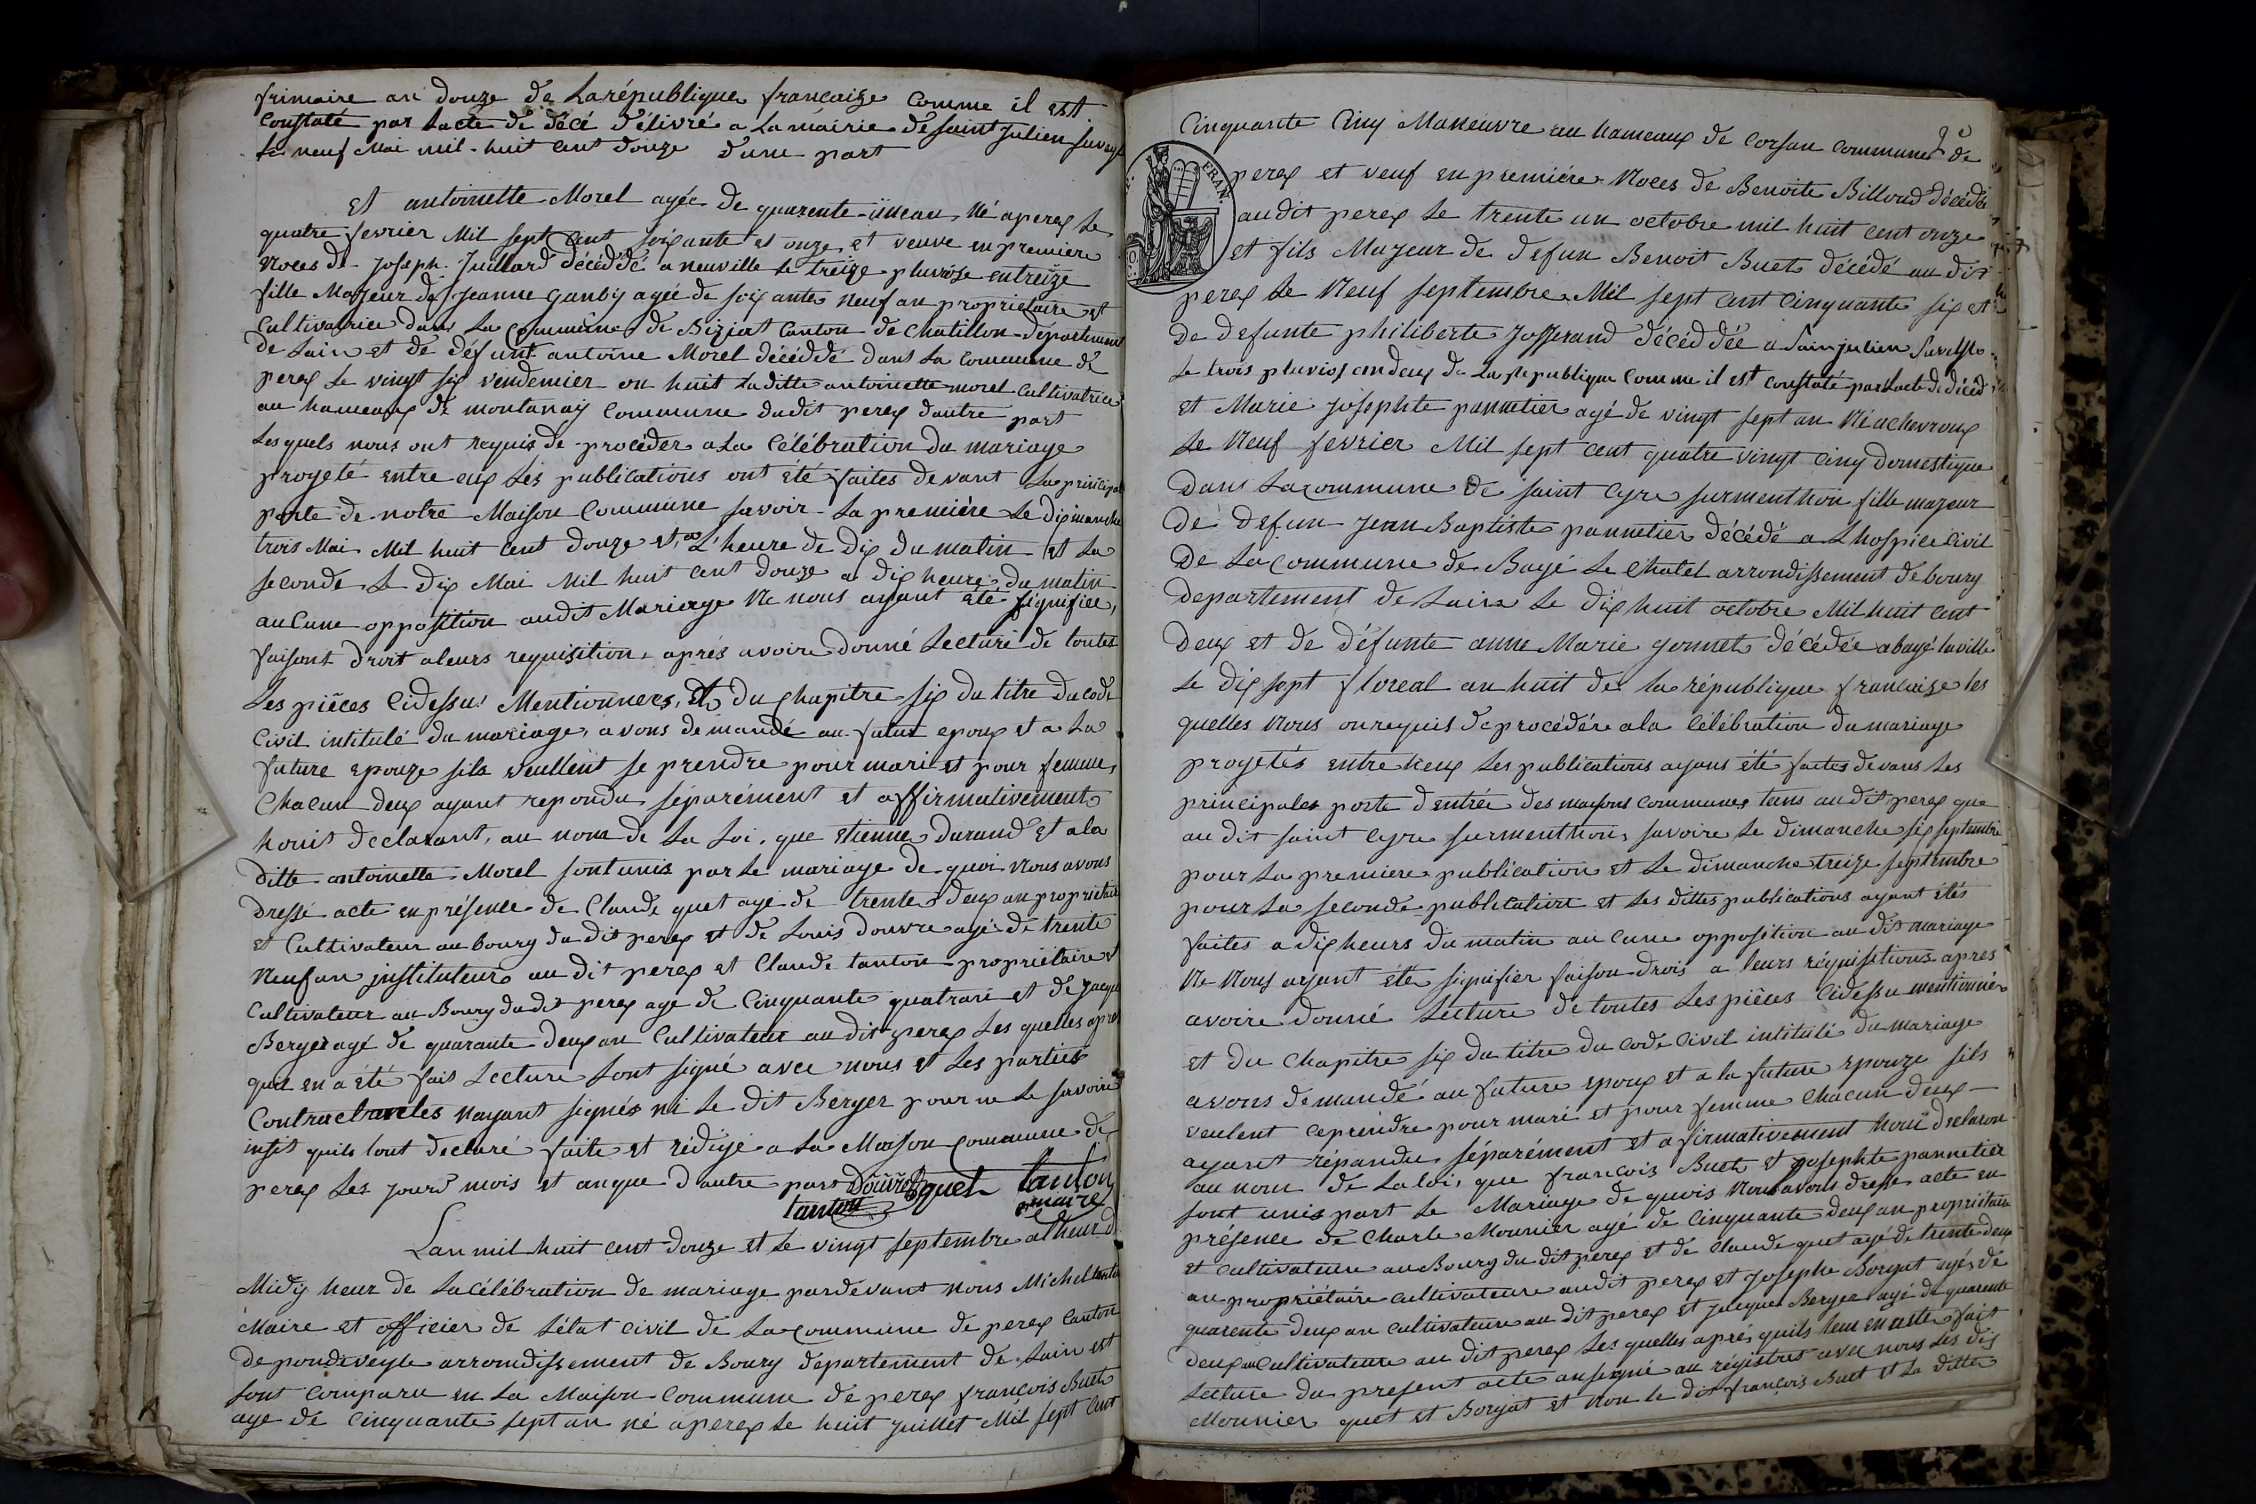 frimaire an douze de Larépublique françaize Comme il est
Constaté par Lacte de décé délivré a La mairie de Saint Julien Surveyle
Le neuf Mai mil-huit cent douze dune part
Et antoinette Morel agée de quarente-un an Né a perex Le
quatre fevrier Mil sept cent soixante et onze, et veuve en premiere
Noces de Joseph Juillard décéddé a neuville Le treize pluviôse an treize
fille Majeur de Jeanne Ganby agée de soixante Neuf an propriétaire et
Cultivatrice dans La Commune de Biziat Canton de Chatillon departement
de Lain et de défunt antoine Morel décéddé dans La Commune de
perex Le vingt six vendemier an huit Laditte antoinette morel Cultivatrice
au hameaux de montanaÿ Commune dudit perex dautre part
Lesquels nous ont requis de procéder a La Célébration du mariage
progeté entre eux Les publications ont été faites devant La principal
porte de notre Maison Commune savoir La première Le dimanche
trois Mai Mil huit cent douze et a L'heure de dix du matin et La
seconde L dix Mai Mil huit cent douze a dix heure du matin
aucune opposition audit Mariage Ne nous ayant été signifiée,
faisant droit aleurs requisition, aprés avoire donné Lecture de toutes
Les pièces Cidessus Mentionnees, et du chapitre six du titre du code
Civil intitulé du mariage, avons demandé au futur epoux et a La
future epouze sils veullent se prendre pour mari et pour femme,
Chacun deux ayant repondu séparément et affirmativement
nous declarant, au nom de La Loi, que Etienne Durand et a la
ditte antoinette Morel sont unis par Le mariage de quoi Nous avons
dressé acte en présence de Claude quet agé de trente deux an proprietaire
et Cultivateur au bourg du dit perex et de Louis Douvre agé de trente
Neuf an jnstituteur au dit perex et Claude tanton propriétaire et
Cultivateur au Bourg dudit perex age de Cinquante quatrani et de Jacque
Berger agé de quarante deux an Cultivateur au dit perex Les quelles apres
que en a été fait Lecture Sont signé avec nous et Les parties
Contractantes nayant signés ni Le dit Berger pour ne Le savoire
insit quils Lont declaré faite et rédige a La Maison Commune de
perex Les jours mois et an que d autre part Douvre quet tanton
tanton maire
Lan mil huit cent douze et Le vingt septembre a Lheur d
Midÿ heur de La célébration de mariage pardevant nous Michel tanton
Maire et officier de Létat civil de La Commune de perex Canton
de pondeveyle arrondissement de Bourg departement de Lain est
sont comparu en La Maison Commune de perex françois Buet
age de Cinquante sept an né a perex Le huit juillet Mil sept Cent
Cinquante Cinq Maneuvre au hameaux de Corsan Commune de
perex et veuf en premiére Noces de Benoite Billoud décédée
audit perex Le trente un octobre mil huit cent onze
et fils Majeur de defun Benoit Buet décédé au dit
perex Le Neuf septembre Mil sept Cent Cinquante six et
de defunte philiberte Josserand décéddée a Sainjulien Surveyle
Le trois pluvios an deux de La republique Comme il est Constaté par Lacte de décéd
et Marie josephte pannetier agé de vingt sept an Né achevroux
Le Neuf fevrier Mil sept cent quatre vingt cinq domestique
dans Lacommune de saint Cyre surmenthon fille majeur
de defun jean Baptiste pannetier décédé a Lhospice Civil
de La Commune de Bagé Le Chatel arrondissement de bourg
departement de Lain Le dix huit octobre Mil huit Cent
deux et de défunte anne Marie gonnet décédée abagé laville
Le dix sept floreal an huit de la république francaize les
quelles Nous on requis de procédére a la célébration du mariage
progetés entre heux Les publications ayans été faites devans Les
principales porte dentrée des maysons communes tans audit perex que
au dit saint cyre surmenthon, savoire Le dimanche six septembre
pour La premiere publication et Le dimanche treize septembre
pour La seconde publication et Les dittes publications ayant étés
faites a dix heurs du matin aucune opposition au dit mariage
Ne Nous ayant été signifier faison drois a leurs réquisitions apres
avoire donné Lecture de toutes Les pièces Cidessu mentionnés
et du Chapitre six du titre du code Civil intitulé du mariage
avons demandé au future epoux et a la future epouze sils
veulent ceprendre pour mari et pour femme Chacun deux
ayant répandu séparément et afirmativement nous declaron
au nom de La loi, que francois Buet et josephte pannetier
sont unis part Le Mariage de quois Nous avons dresse acte en
présence de Charle Mounier agé de cinquante deux an propriétaire
et cultivateur au Bourg du dit perex et de Claude quet agé de trente deux
an propriétaire cultivateure audit perex et Josephe Borgat agés de
quarente deux an cultivateure au dit perex et Jacque Berger agé de quarente
deux an cultivateure au dit perex Les quelles aprés quils leur en aété fait
Lecture du present acte ansigné au régistres avec nous Les dis
Mounier quet et Borgat et Non le dit françois Buet et La ditte